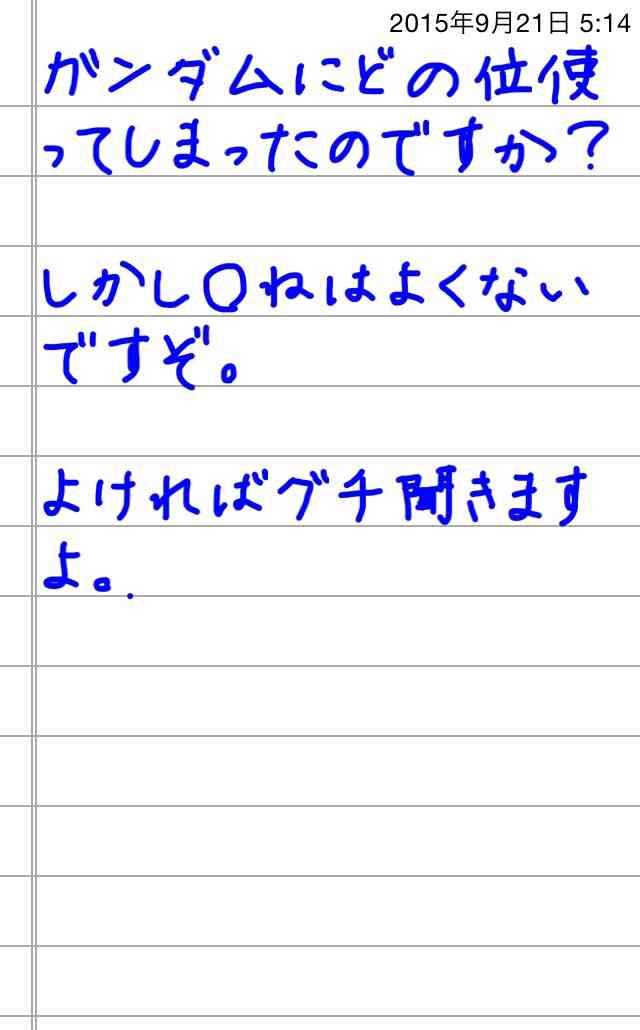 2015年9月21日 5:14
ガンダムにどの位使
ってしまったのですか？
しかし〇ねはよくない
ですぞ。
よければグチ聞きます
よ。.